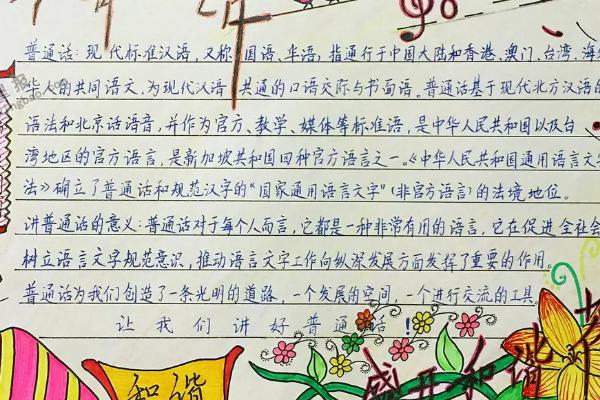 普通话：现代标准汉语，又称国语、华语，指通行于中国大陆和香港、澳门、台湾、海
华人的共同语文，为现代汉语共通的口语交际与书面语。普通话基于现代北方汉语的
语法和北京话语音，并作为官方、教学、媒体等标准语，是中华人民共和国以及台
湾地区的官方语言，是新加坡共和国四种官方语言之一。《中华人民共和国通用语言文字
法》确立了普通话和规范汉字的“国家通用语言文字”（非官方语言）的法境地位。
讲普通话的意义：普通话对于每个人而言，它都是一种非常有用的语言，它在促进全社会
树立语言文字规范意识，推动语言文字工作向纵深发展方面发挥了重要的作用。
普通话为我们创造了一条光明的道路，一个发展的空间，一个进行交流的工具。
让我们讲好普通话！
和谐
盛开和谐